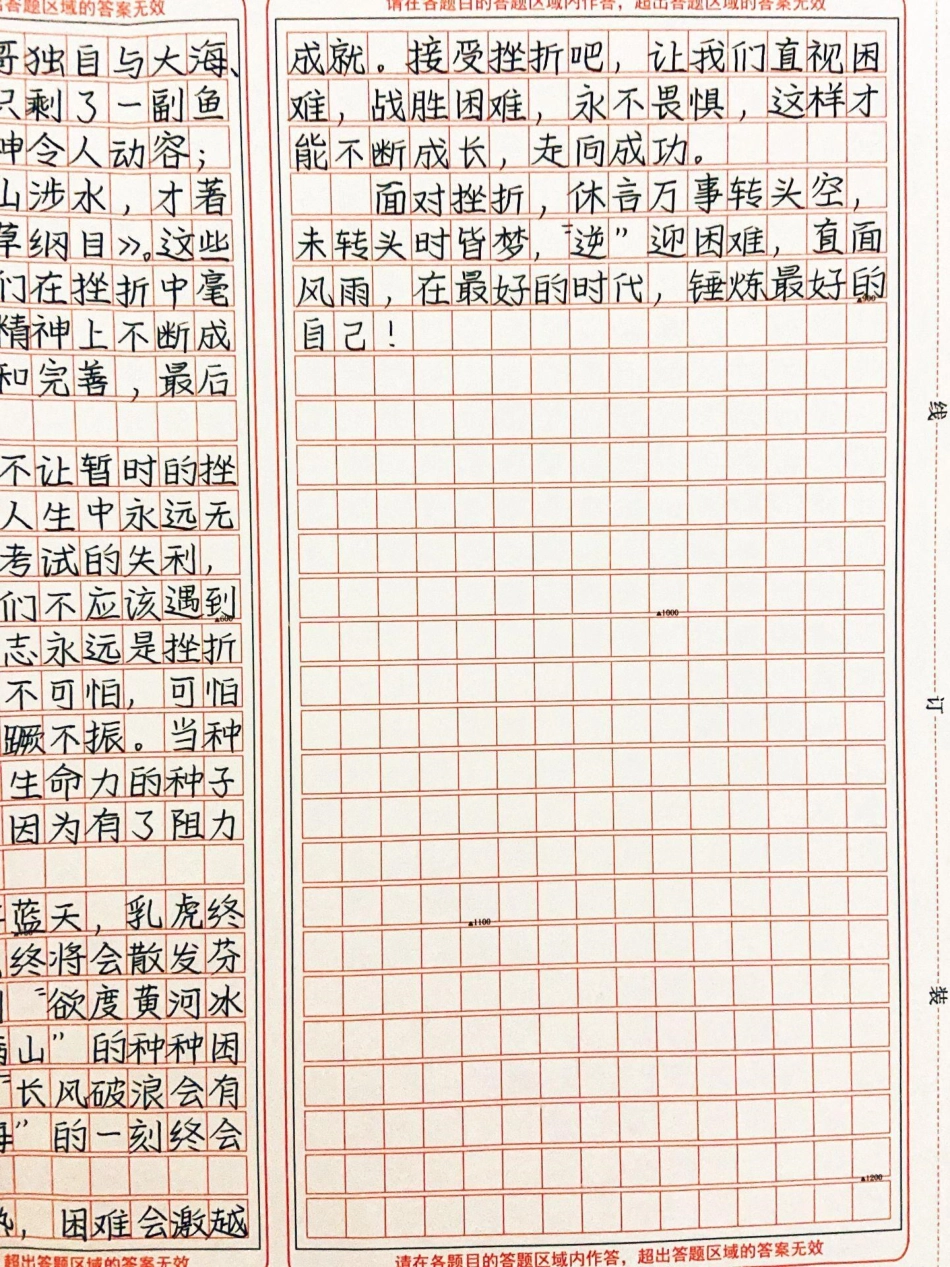 出答题区域的答案无效
独自与大海、
只剩了一副鱼
神令人动容；
山涉水，才著
草纲目》。这些
们在挫折中毫
精神上不断成
和完善，最后
不让暂时的挫
人生中永远无
考试的失利，
们不应该遇到
▲800
志永远是挫折
不可怕，可怕
蹶不振。当种
生命力的种子
因为有了阻力
蓝天，乳虎终
终将会散发芬
“欲度黄河冰
山”的种种困
“长风破浪会有
海”的一刻终会
，困难会激越
超出答题区域的答案无效
请在各题目的答题区域内作答，超出答题区域的答案无效
成就。接受挫折吧，让我们直视困
难，战胜困难，永不畏惧，这样才
能不断成长，走向成功。
面对挫折，休言万事转头空，
未转头时皆梦，“逆”迎困难，直面
风雨，在最好的时代，锤炼最好的
▲900
自己！
▲1000
▲1100
▲1200
请在各题目的答题区域内作答，超出答题区域的答案无效
线
订
装